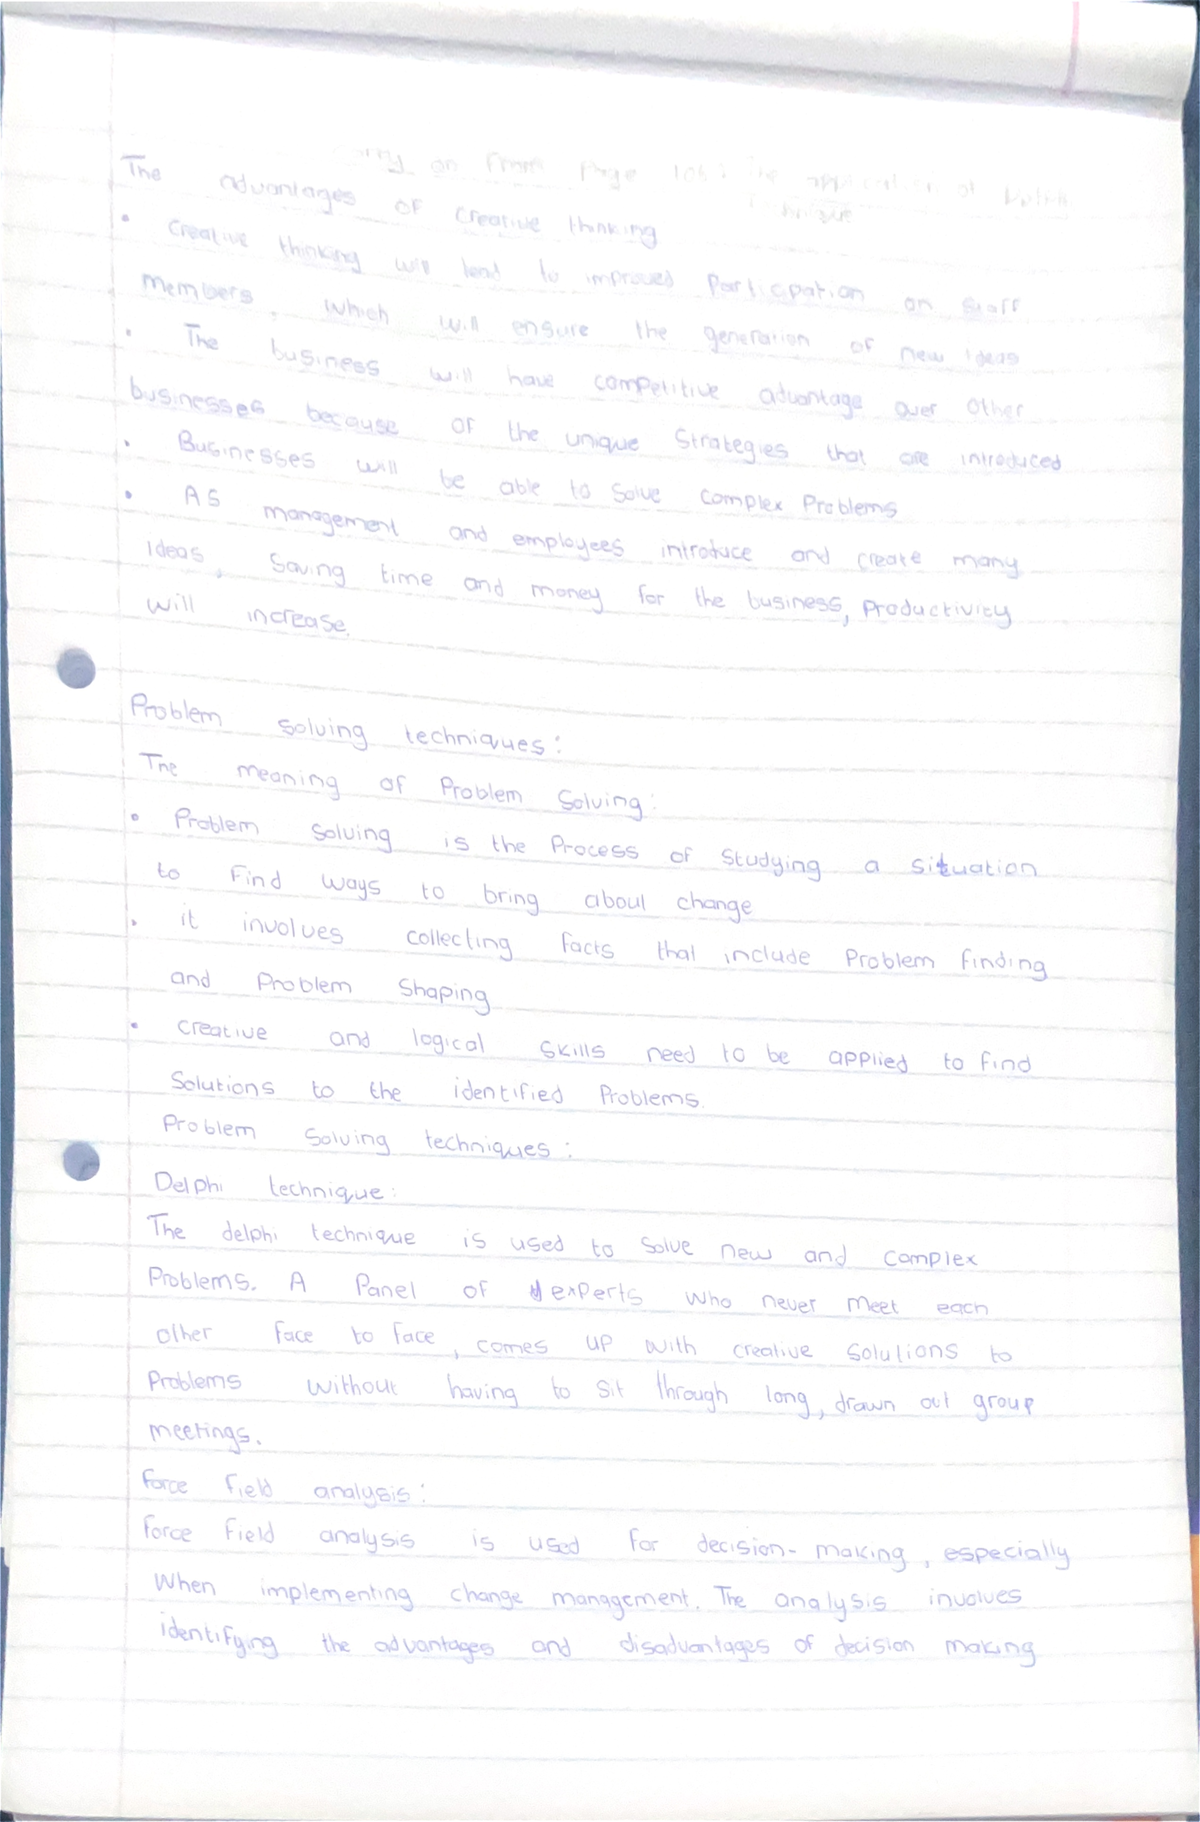 on from page 104: the application of Delphi
The advantages of creative thinking
• Creative thinking will lead to improved participation on staff
members, which will ensure the generation of new ideas
• The business will have competitive advantage over other
businesses because of the unique strategies that are introduced
• Businesses will be able to solve complex problems
• AS management and employees introduce and create many
ideas, saving time and money for the business, productivity
will increase.
Problem solving techniques:
The meaning of Problem solving:
• Problem solving is the process of studying a situation
to find ways to bring about change
• it involves collecting facts that include problem finding
and problem shaping
• creative and logical skills need to be applied to find
solutions to the identified problems.
Problem solving techniques:
Delphi technique:
The delphi technique is used to solve new and complex
problems. A panel of experts who never meet each
other face to face, comes up with creative solutions to
problems without having to sit through long, drawn out group
meetings.
force field analysis:
force field analysis is used for decision-making, especially
when implementing change management. The analysis involves
identifying the advantages and disadvantages of decision making